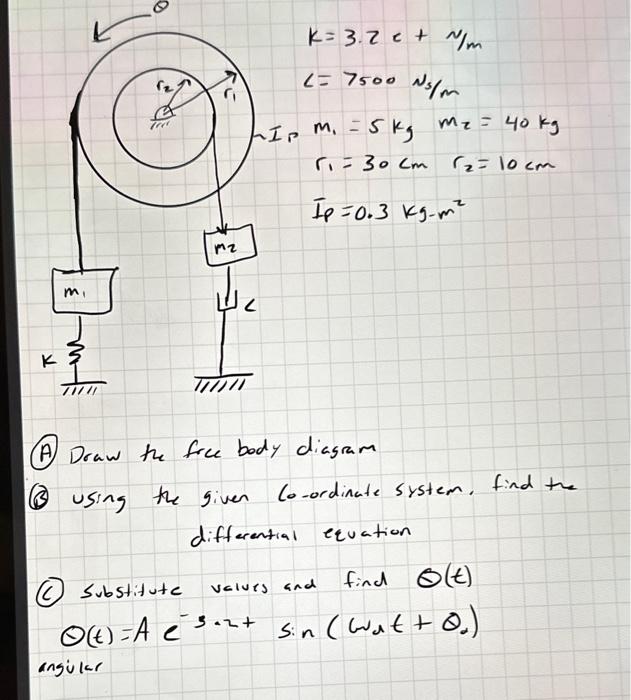 θ
K = 3.2 e + N/m
C = 7500 Ns/m
r2
r1
Ip
m1 = 5 kg m2 = 40 kg
r1 = 30 cm r2 = 10 cm
Ip = 0.3 kg-m²
m2
m1
C
K
(A) Draw the free body diagram
(B) using the given Co-ordinate system, find the
differential equation
(C) Substitute values and find θ(t)
θ(t) = A e^-3.2t sin (ωdt + θ0)
angular